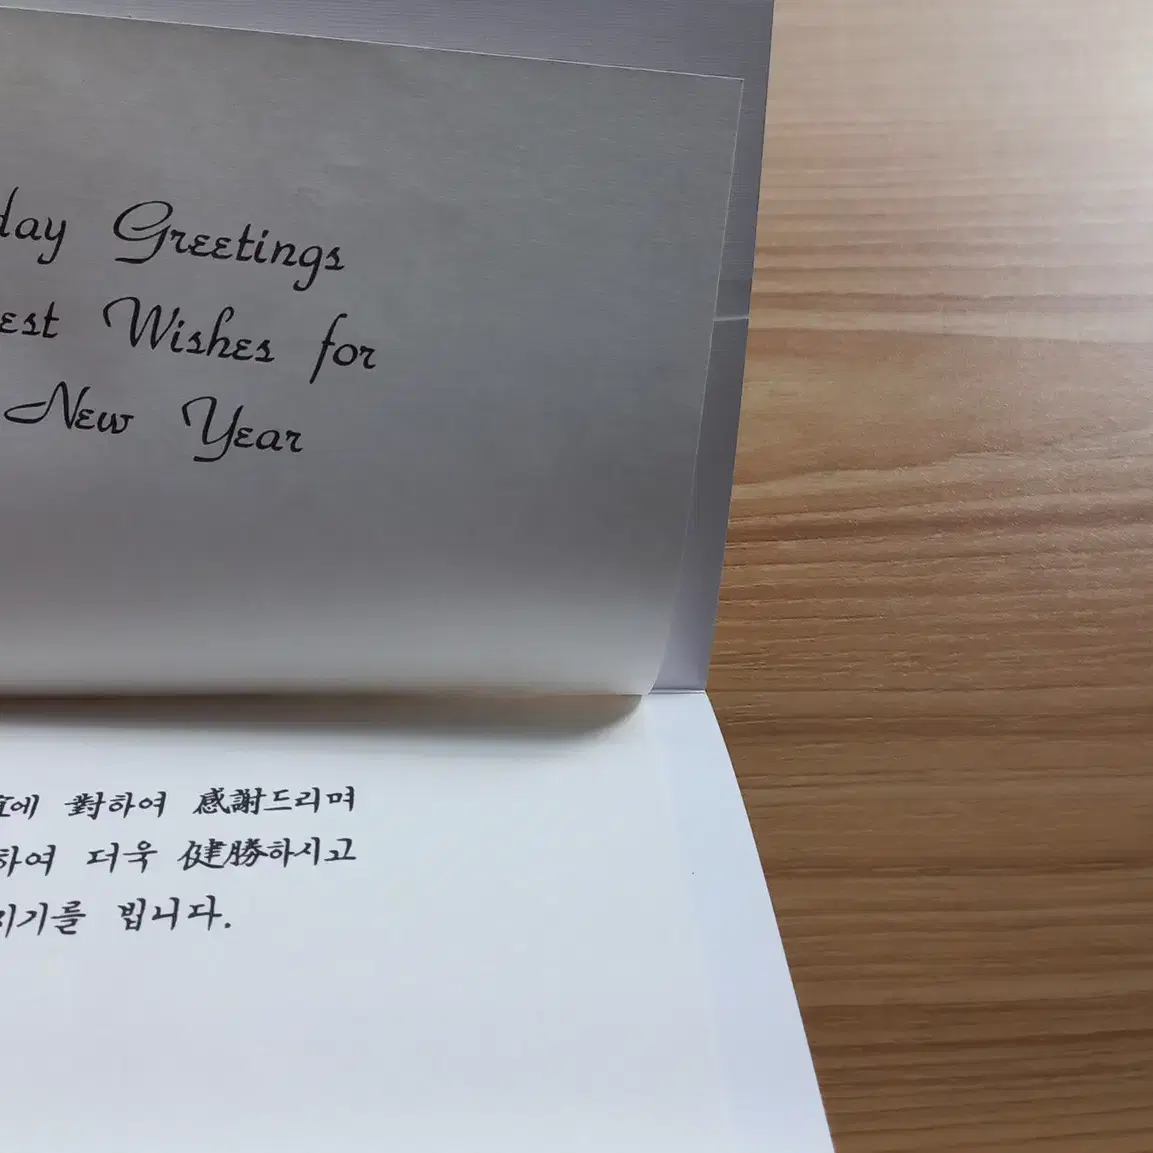 day Greetings
est Wishes for
New Year
에 對하여 感謝드리며
하여 더욱 健勝하시고
기를 빕니다.